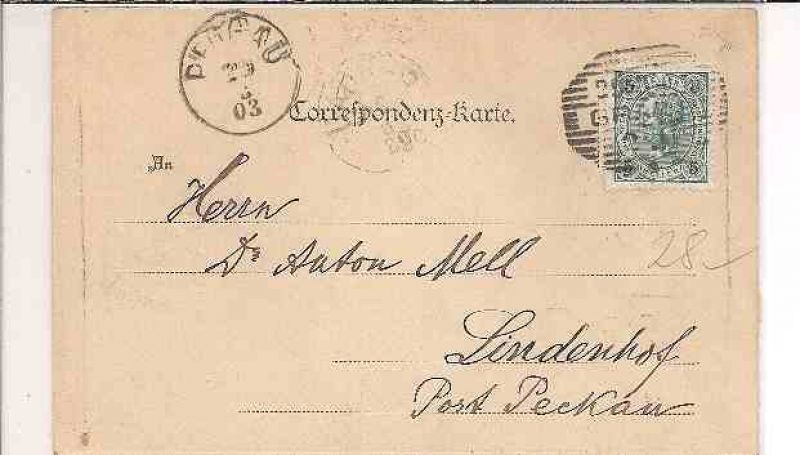 PECKAU
03
Correspondenz-Karte.
An
Herrn
Dr Anton Mell
28.-
Lindenhof
Post Peckau
5 5
5 5